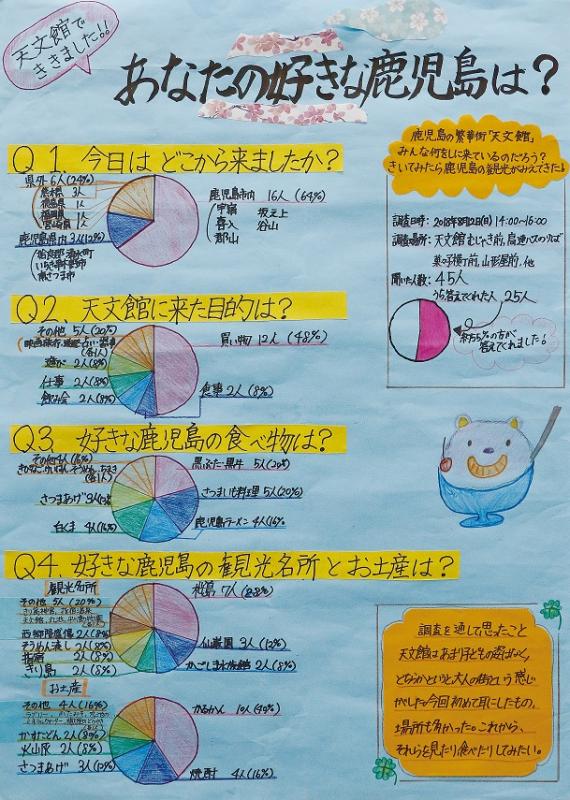 天文館で
ききました!!
あなたの好きな鹿児島は?
鹿児島の繁華街「天文館」
みんな何をしに来ているのだろう?
きいてみたら鹿児島の観光がみえてきた!
Q1 今日は どこから来ましたか?
県外 6人(24%)
島根 3人
福島県 1人
福岡県 1人
宮崎県 1人
鹿児島県内 3人(12%)
いちき串木野市
南さつま市
鹿児島市内 16人(64%)
宇宿 坂之上
喜入 谷山
郡山
調査日時:2018年8月12日(日)14:00~16:00
調査場所:天文館むじゃき前、高速バスのりば
山形屋前、他
聞いた人数:45人
うち答えてくれた人 25人
約55%の方が
答えてくれました!
Q2、天文館に来た目的は?
その他 5人(20%)
(各1人)
遊び 2人(8%)
仕事 2人(8%)
飲み会 2人(8%)
買い物 12人(48%)
食事 2人(8%)
Q3 好きな鹿児島の食べ物は?
その他 4人(16%)
(各1人)
さつまあげ 3人(12%)
白くま 4人(16%)
黒ぶた・黒牛 5人(20%)
さつまいも料理 5人(20%)
鹿児島ラーメン 4人(16%)
Q4、好きな鹿児島の観光名所とお土産は?
観光名所
その他 5人(20%)
西郷隆盛像 2人(8%)
そうめん流し 2人(8%)
指宿 2人(8%)
きり島 2人(8%)
桜島 7人(28%)
仙巌園 3人(12%)
かごしま水族館 2人(8%)
お土産
その他 4人(16%)
かすたどん 2人(8%)
火山灰 2人(8%)
さつまあげ 3人(12%)
かるかん 10人(40%)
焼酎 4人(16%)
調査を通して思ったこと
天文館はあまり子どもの姿はなく、
どちらかというと大人の街という感じ
がした。今回初めて耳にしたもの、
場所も多かった。これから、
それらを見たり食べたりしてみたい。